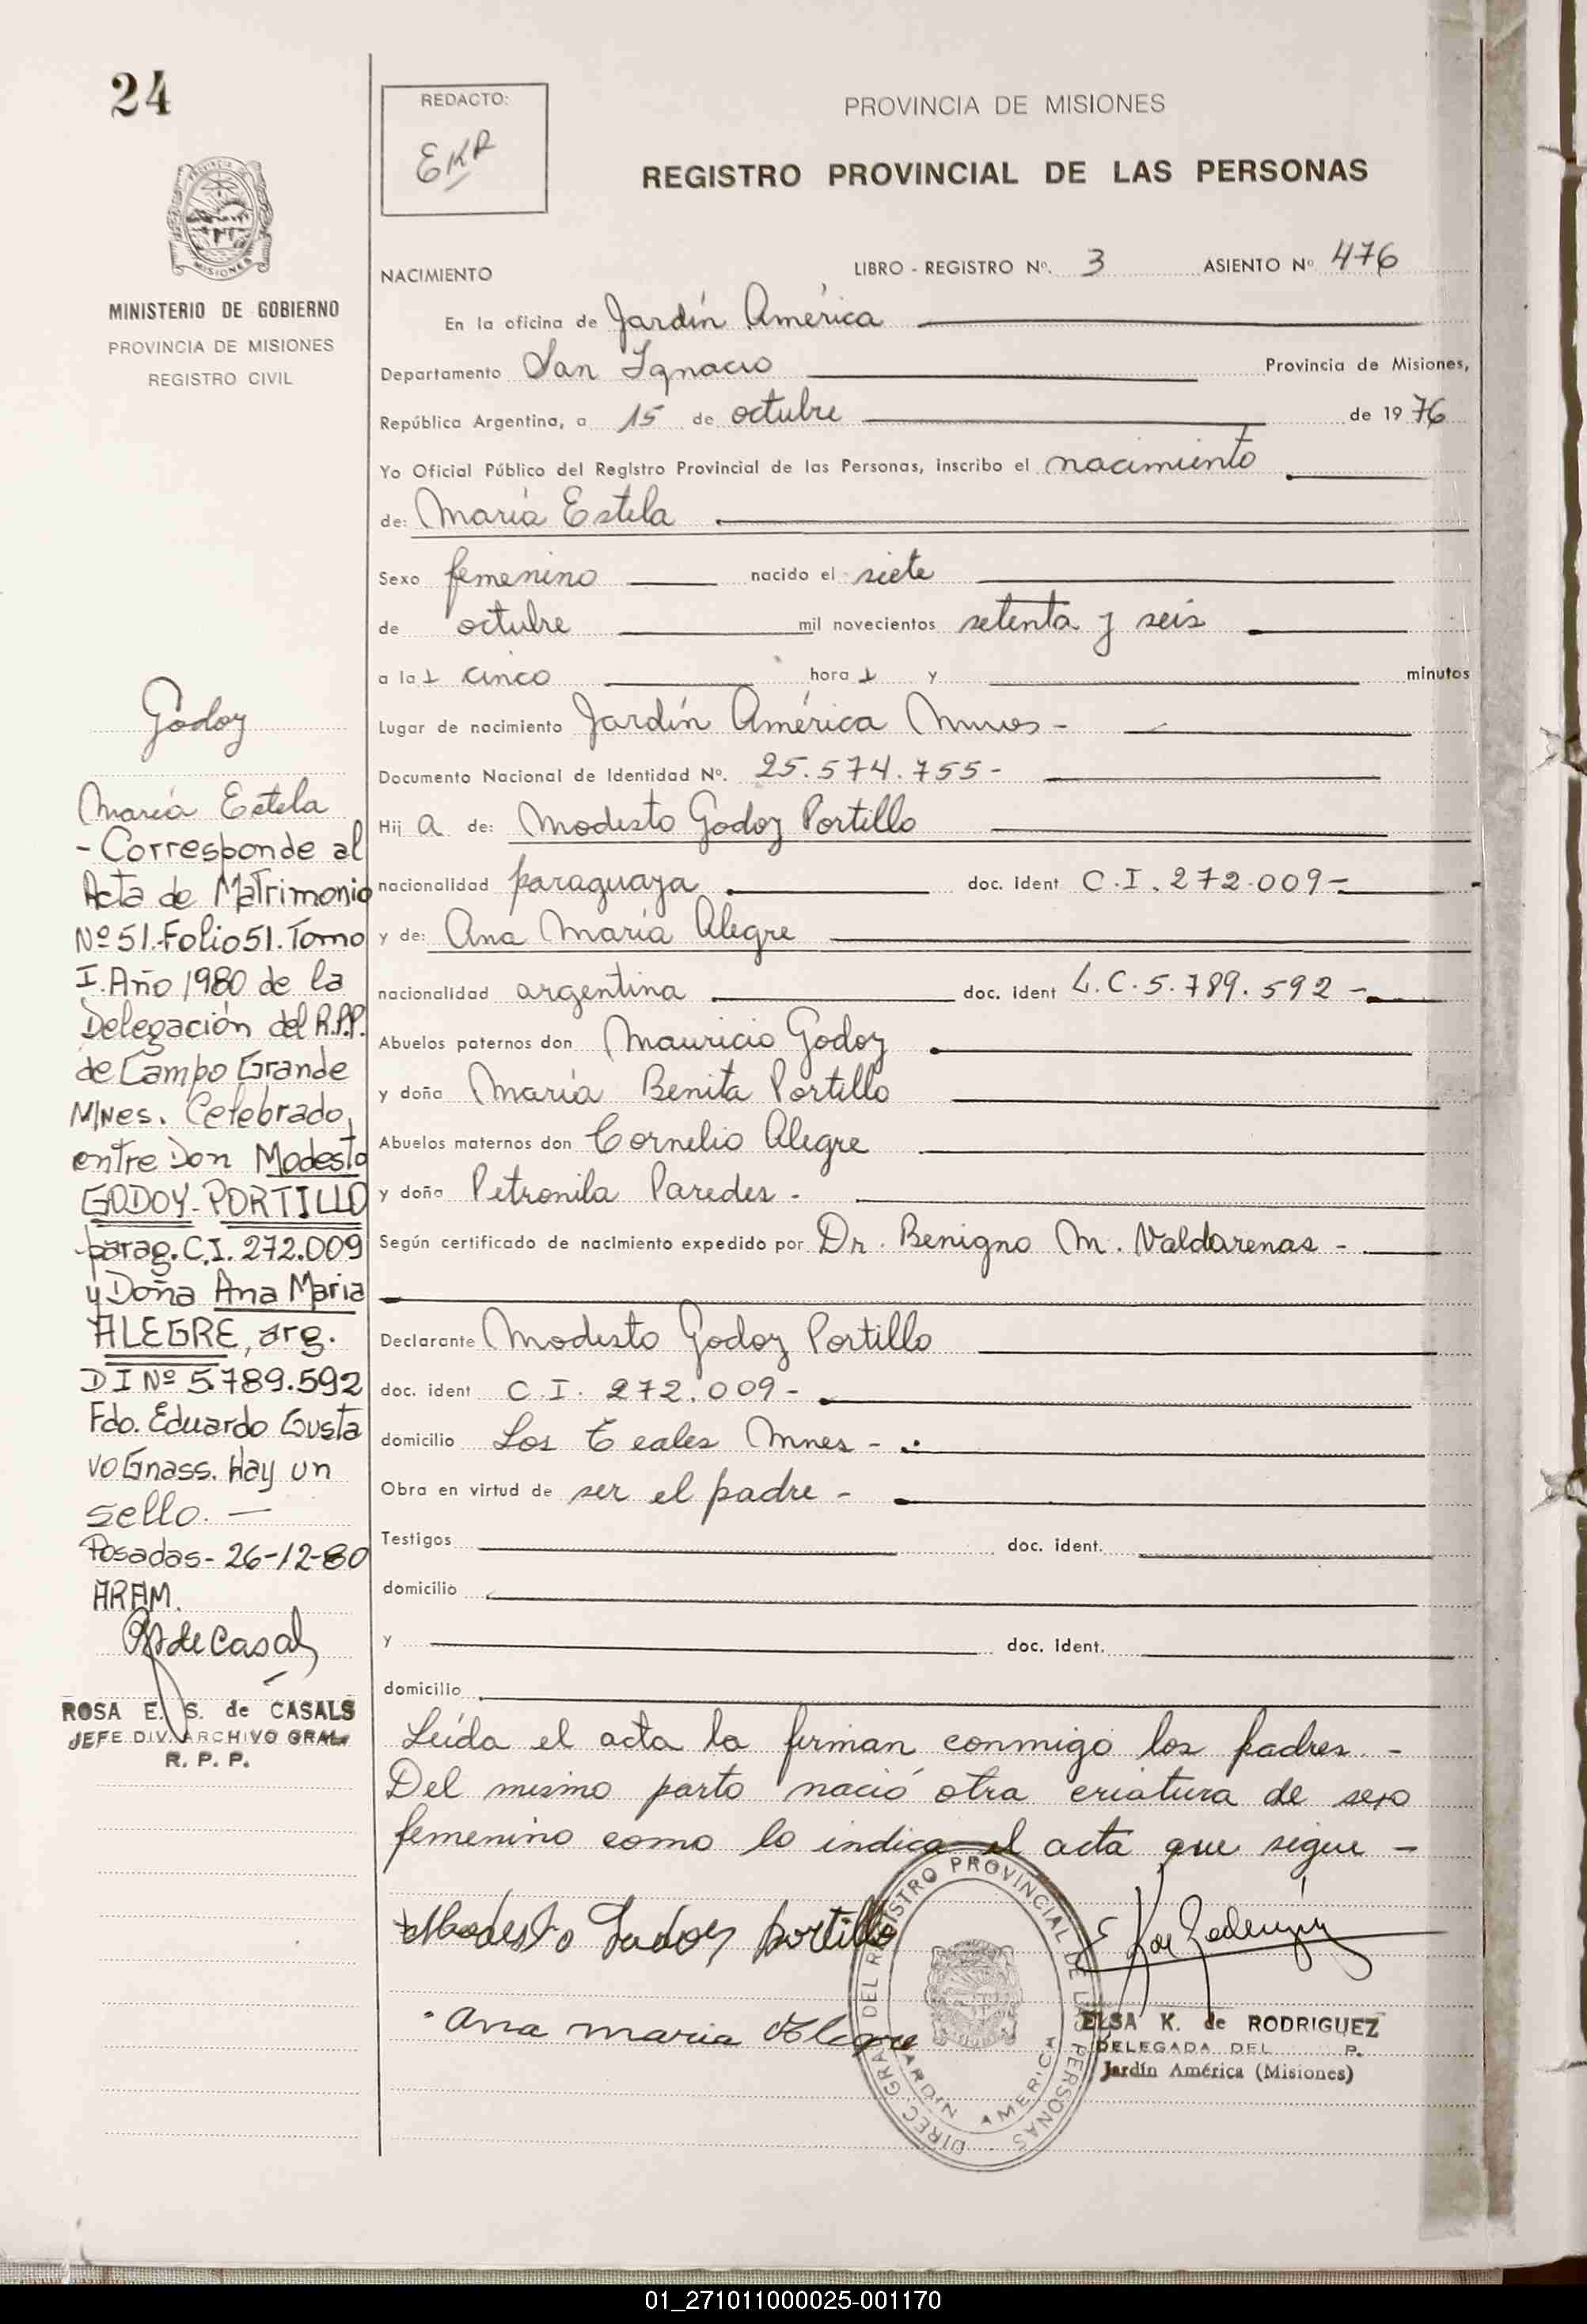 24
REDACTO:
EKR
PROVINCIA DE MISIONES
REGISTRO PROVINCIAL DE LAS PERSONAS
MISIONES
MINISTERIO DE GOBIERNO
PROVINCIA DE MISIONES
REGISTRO CIVIL
NACIMIENTO LIBRO - REGISTRO Nº. 3 ASIENTO Nº 476
En la oficina de Jardín América
Departamento San Ignacio Provincia de Misiones,
República Argentina, a 15 de octubre de 1976
Yo Oficial Público del Registro Provincial de las Personas, inscribo el nacimiento
de: María Estela
Sexo femenino nacido el siete
de octubre mil novecientos setenta y seis
a las cinco horas y minutos
Lugar de nacimiento Jardín América Mnes -
Documento Nacional de Identidad Nº. 25.574.755-
Hija de: Modesto Godoy Portillo
nacionalidad paraguaya doc. ident C.I. 272.009-
y de: Ana María Alegre
nacionalidad argentina doc. ident L.C. 5.789.592 -
Abuelos paternos don Mauricio Godoy
y doña María Benita Portillo
Abuelos maternos don Cornelio Alegre
y doña Petronila Paredes -
Según certificado de nacimiento expedido por Dr. Benigno M. Valdarenas -
Declarante Modesto Godoy Portillo
doc. ident C.I. 272.009-
domicilio Los Teales Mnes -
Obra en virtud de ser el padre -
Testigos doc. ident.
domicilio
y doc. ident.
domicilio
Leída el acta la firman conmigo los padres. -
Del mismo parto nació otra criatura de sexo
femenino como lo indica el acta que sigue -
Modesto Godoy portillo
Ana maria Alegre
DIREC GRAL DEL REGISTRO PROVINCIAL DE LAS PERSONAS
JARDIN AMERICA
ELSA K. de RODRIGUEZ
DELEGADA DEL P.
Jardín América (Misiones)
Godoy
María Estela
- Corresponde al
Acta de Matrimonio
Nº 51. Folio 51. Tomo
I. Año 1980 de la
Delegación del R.P.P.
de Campo Grande
Mnes. Celebrado
entre Don Modesto
GODOY-PORTILLO
parag. C.I. 272.009
y Doña Ana Maria
ALEGRE, arg.
D I Nº 5.789.592
Fdo. Eduardo Gusta
vo Gnass. Hay un
sello. -
Posadas - 26-12-80
ARAM.
RS de Casals
ROSA E. S. de CASALS
JEFE DIV. ARCHIVO GRAL
R. P. P.
01_271011000025-001170